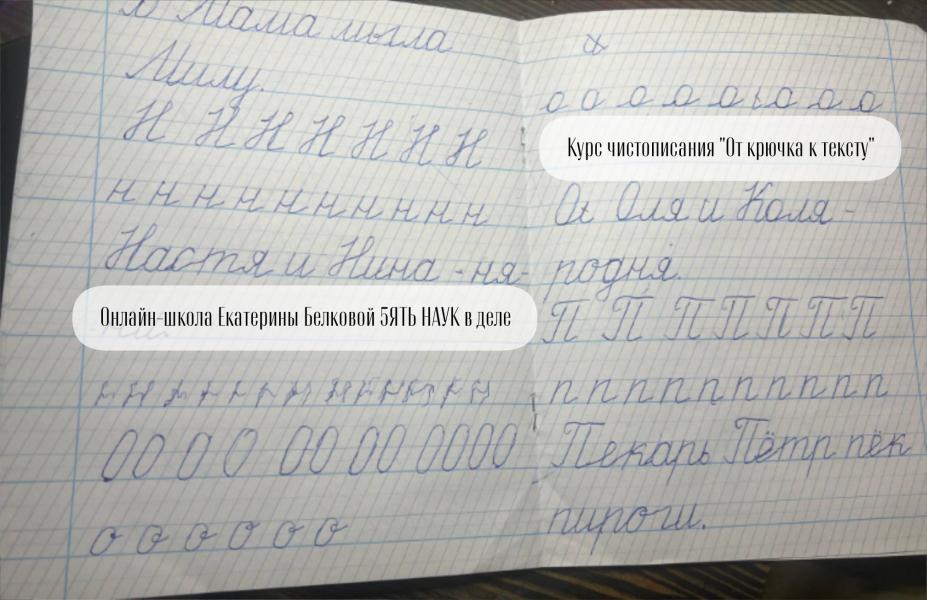 Мама мыла
Милу.
Н Н Н Н Н Н Н
н н н н н н н н н н н
Настя и Нина - ня-
Онлайн-школа Екатерины Белковой 5ЯТЬ НАУК в деле
О О О О О О О О О О О О
о о о о о о
о о о о о о о о
Курс чистописания "От крючка к тексту"
Оля и Коля -
родня.
П П П П П П П
п п п п п п п п п п
Пекарь Пётр пёк
пироги.